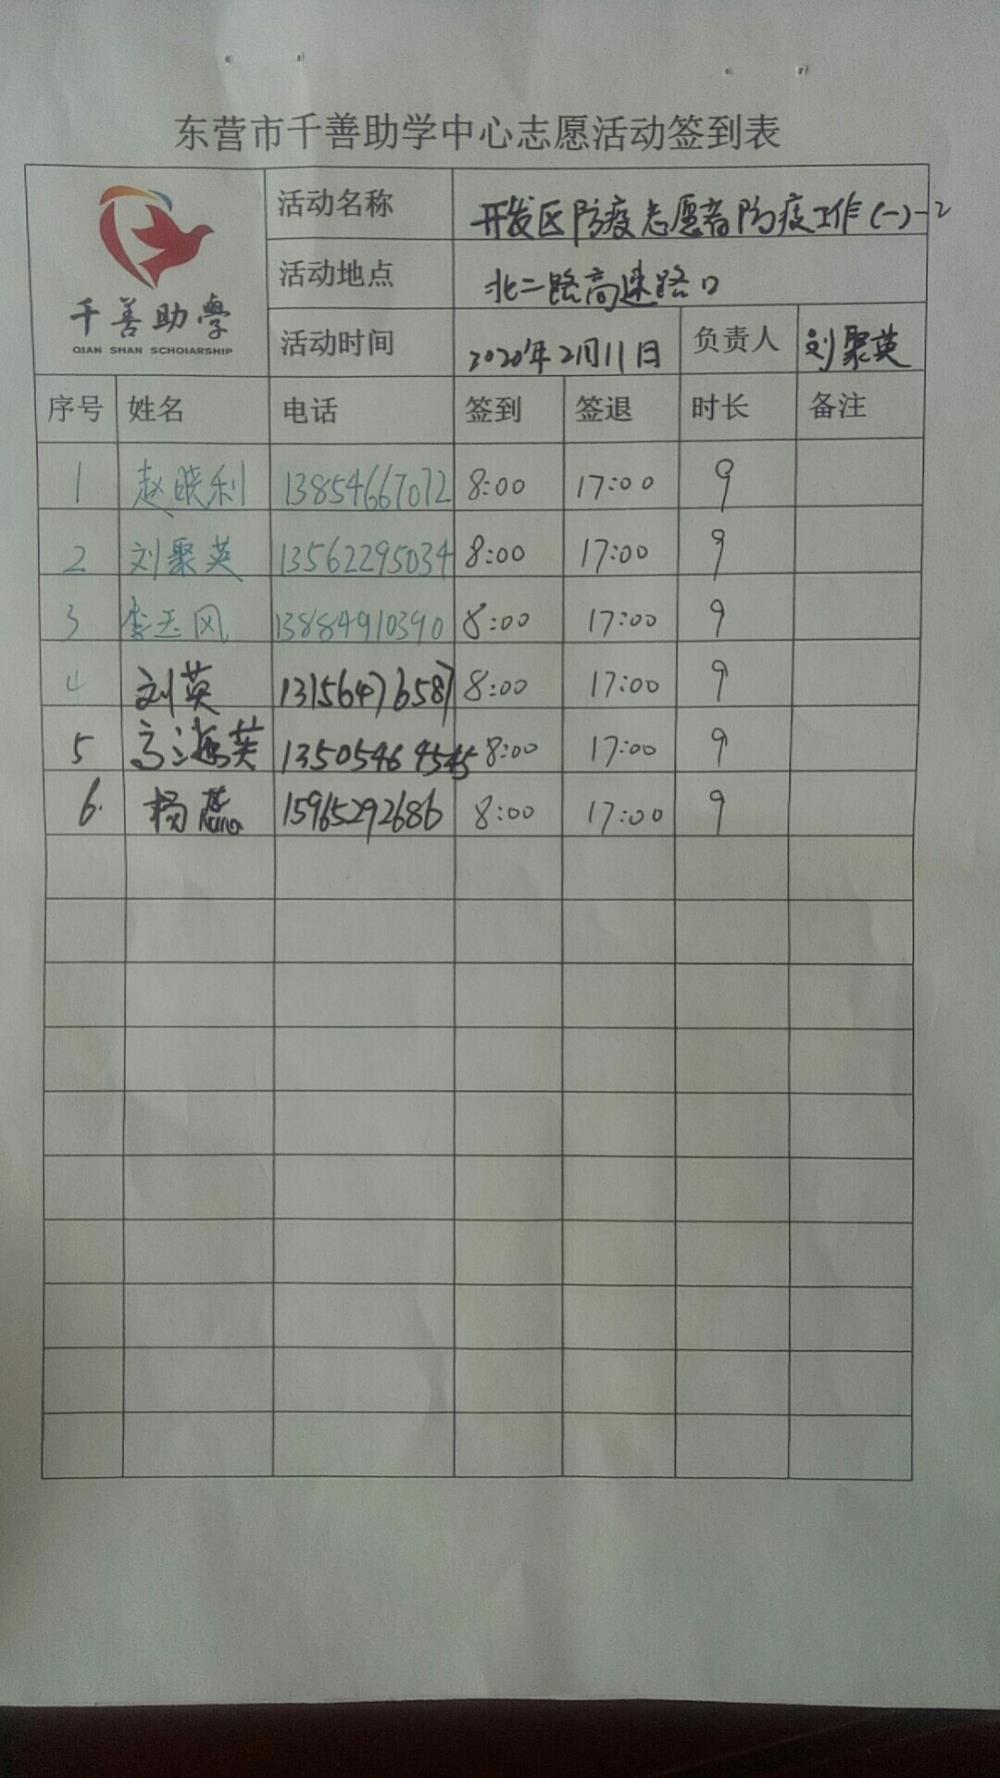 东营市千善助学中心志愿活动签到表
千善助學
QIAN SHAN SCHOLARSHIP
活动名称 开发区防疫志愿者防疫工作(一)-2
活动地点 北二路高速路口
活动时间 2020年2月11日 负责人 刘聚英
序号 姓名 电话 签到 签退 时长 备注
1 赵晓利 13854667072 8:00 17:00 9
2 刘聚英 13562295034 8:00 17:00 9
3 李玉风 13884910390 8:00 17:00 9
4 刘英 13156476587 8:00 17:00 9
5 高海英 13505464545 8:00 17:00 9
6. 杨蕊 15965292686 8:00 17:00 9